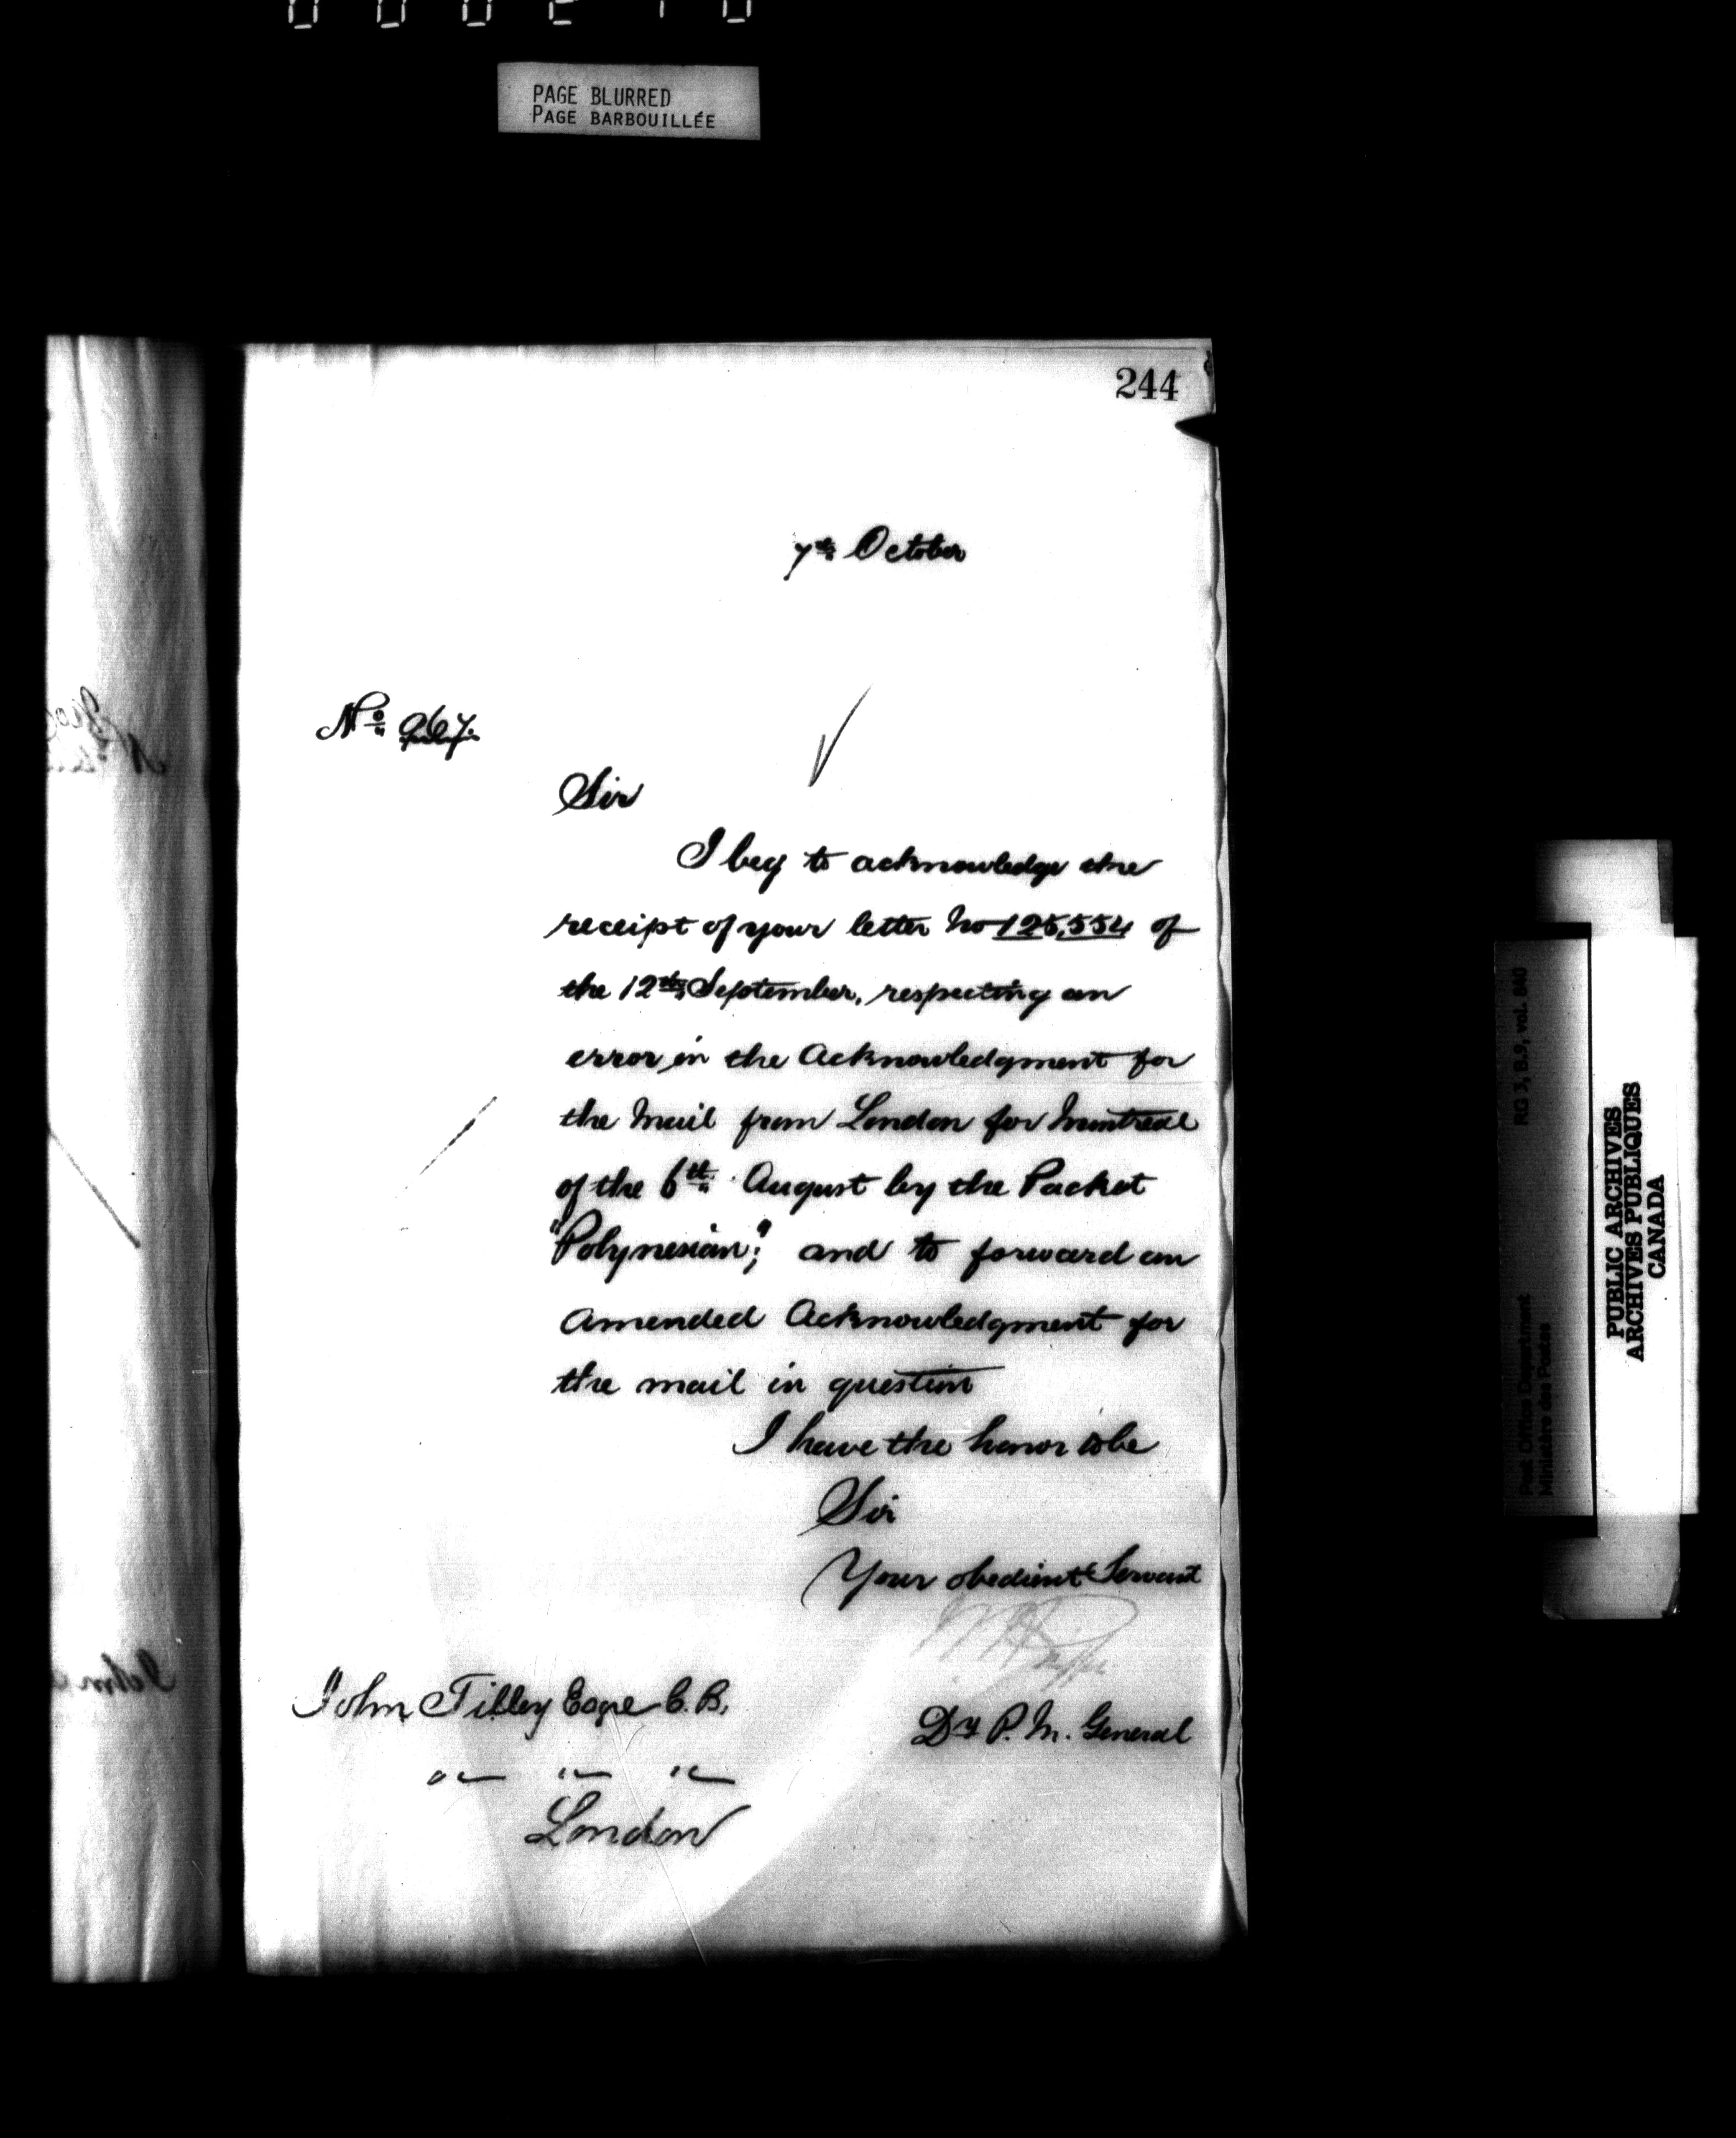 PAGE BLURRED
PAGE BARBOUILLÉE
244
7th October
No 967.
Sir
I beg to acknowledge the
receipt of your letter No 125,554 of
the 12th September, respecting an
error in the Acknowledgment for
the Mail from London for Montreal
of the 6th August by the Packet
"Polynesian", and to forward an
Amended Acknowledgment for
the mail in question
I have the honor to be
Sir
Your obedient Servant
Dy P. M. General
John Tilley Esqre C. B.
" " "
London
RG 3, B.9, vol. 840
Post Office Department
Ministère des Postes
PUBLIC ARCHIVES
ARCHIVES PUBLIQUES
CANADA